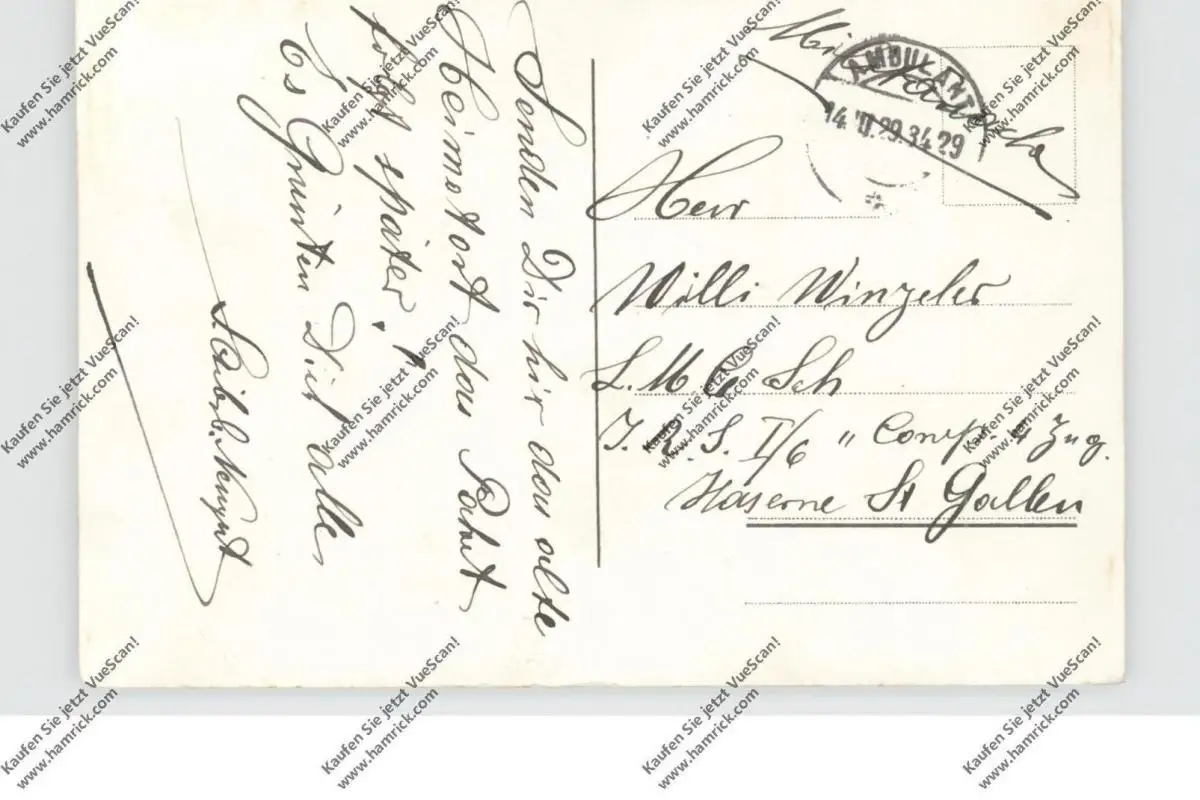 Senden Dir hir das alte
Heimatort das Packet
folgt später.
Es Grünten Dich alle
AMBULANT
14.V.29.34 29
Herr
Willi Winzeler
L. M. G Sch
J. R. S. I/6 " Comp. 4 Zug.
Kaserne St Gallen
Kaufen Sie jetzt VueScan!
www.hamrick.com